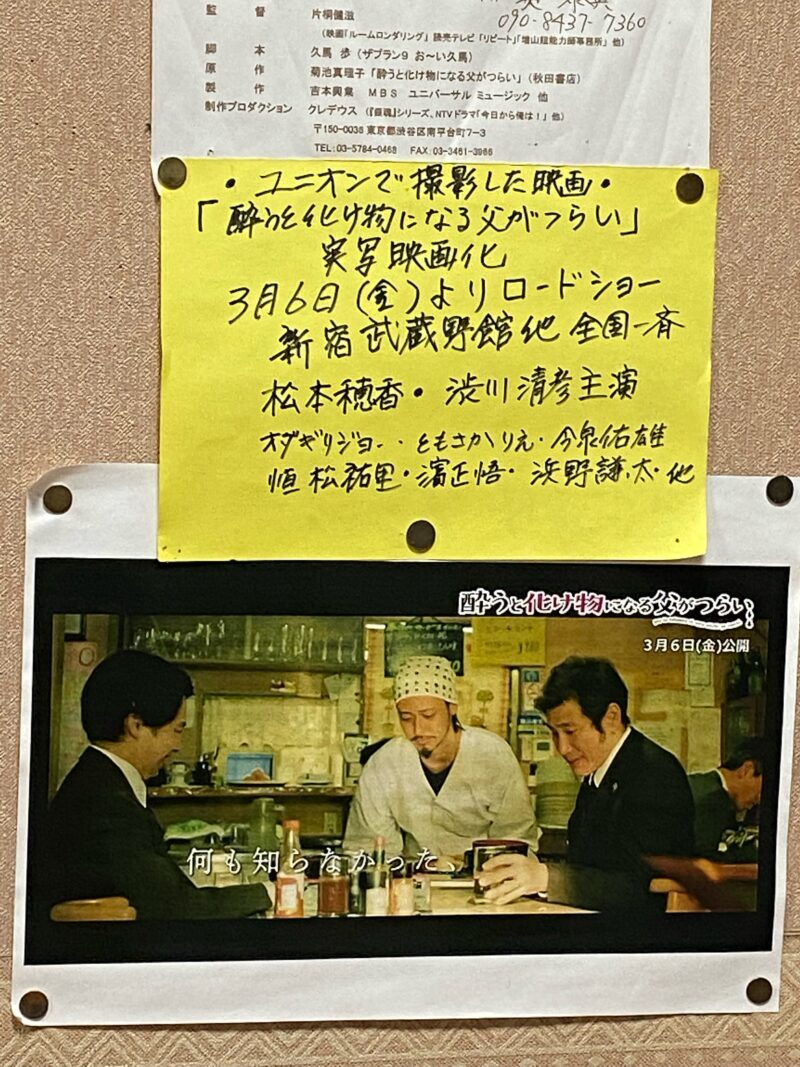 監　督　片桐健滋
(映画『ルームロンダリング』 読売テレビ『リピート』『増山超能力師事務所』 他)
脚　本　久馬 歩 (ザプラン9 お～い久馬)
原　作　菊池真理子「酔うと化け物になる父がつらい」(秋田書店)
製　作　吉本興業　MBS　ユニバーサル ミュージック 他
制作プロダクション　クレデウス (『銀魂』シリーズ、NTVドラマ『今日から俺は!』 他)
〒150-0036 東京都渋谷区南平台町7-3
TEL:03-5784-0468　FAX:03-3461-3966
090-8437-7360
・ユニオンで撮影した映画・
「酔うと化け物になる父がつらい」
実写映画化
3月6日(金)よりロードショー
新宿武蔵野館他 全国一斉
松本穂香・渋川清彦主演
オダギリジョー・ともさかりえ・今泉佑唯
恒松祐里・濱正悟・浜野謙太・他
酔うと化け物になる父がつらい
3月6日(金)公開
何も知らなかった、